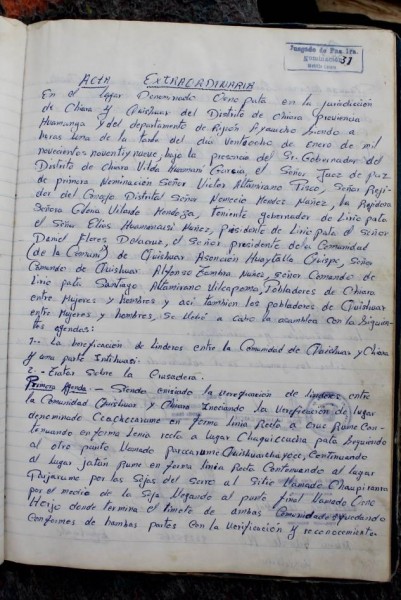 Juzgado de Paz 1ra.
Nominación
31
ACTA EXTRAORDINARIA
En el lugar Denominado Ciene pata en la jurisdicción
de Chiara y Quishuar del Distrito de Chiara Provincia
Huamanga y del departamento de Región Ayacucho Siendo a
horas Una de la tarde del día Veintiocho de enero de mil
novecientos noventi y nueve, bajo la presencia del Sr. Gobernador del
Distrito de Chiara Vilda Huamani Garcia, el Señor Juez de paz
de primera Nominación Señor Victor Altamirano Tisco, Señor Regi-
dor del Concejo Distrital Señor Nemecio Mendez Nuñez, la Regidora
Señora Gloria Velarde Mendoza, Teniente gobernador de Lirio pata
el Señor Elias Huamancusi Nuñez, Presidente de Lirio pata el señor
Daniel Flores Delacruz, el Señor presidente de la Comunidad
(de la Comuni) de Quishuar Asención Huaytalla Quispe, Señor
Comando de Quishuar Alfonso Sombra Nuñez, señor Comando de
Lirio pata Santiago Altamirano Vilcapoma, Pobladores de Chiara
entre Mujeres y hombres y aci tambien los pobladores de Quishuar
entre Mujeres y hombres, Se llevó a cabo la asamblea con la Siguien-
tes agendas:
1.- La Verificación de linderos entre la Comunidad de Quishuar y Chiara
y una parte Intihuasi.
2.- Tratar Sobre la Crusadera.
Primera Agenda - Siendo enviado la Verificación de linderos entre
la Comunidad Quishuar y Chiara Iniciando La Verificación de lugar
denominado Ccachccarumi en forma linia Recto a Cruz Rumi Con-
tenuando en forma linia recto a lugar Chaquiccucha pata Seguiendo
al otro punto Llamado Paccarumi Quishuarchayocc, Continuando
al lugar jatún Rumi en forma linia Recto Contenuando al lugar
por las Sejas del Serro al Sitio Llamado Chaupiranra
por el medio de la Seja Llegando al punto final Llamado Cieni
donde termina el limete de ambas Comunidades quedando
Conformes de hambas partes Con la Verificación y reconocimiento